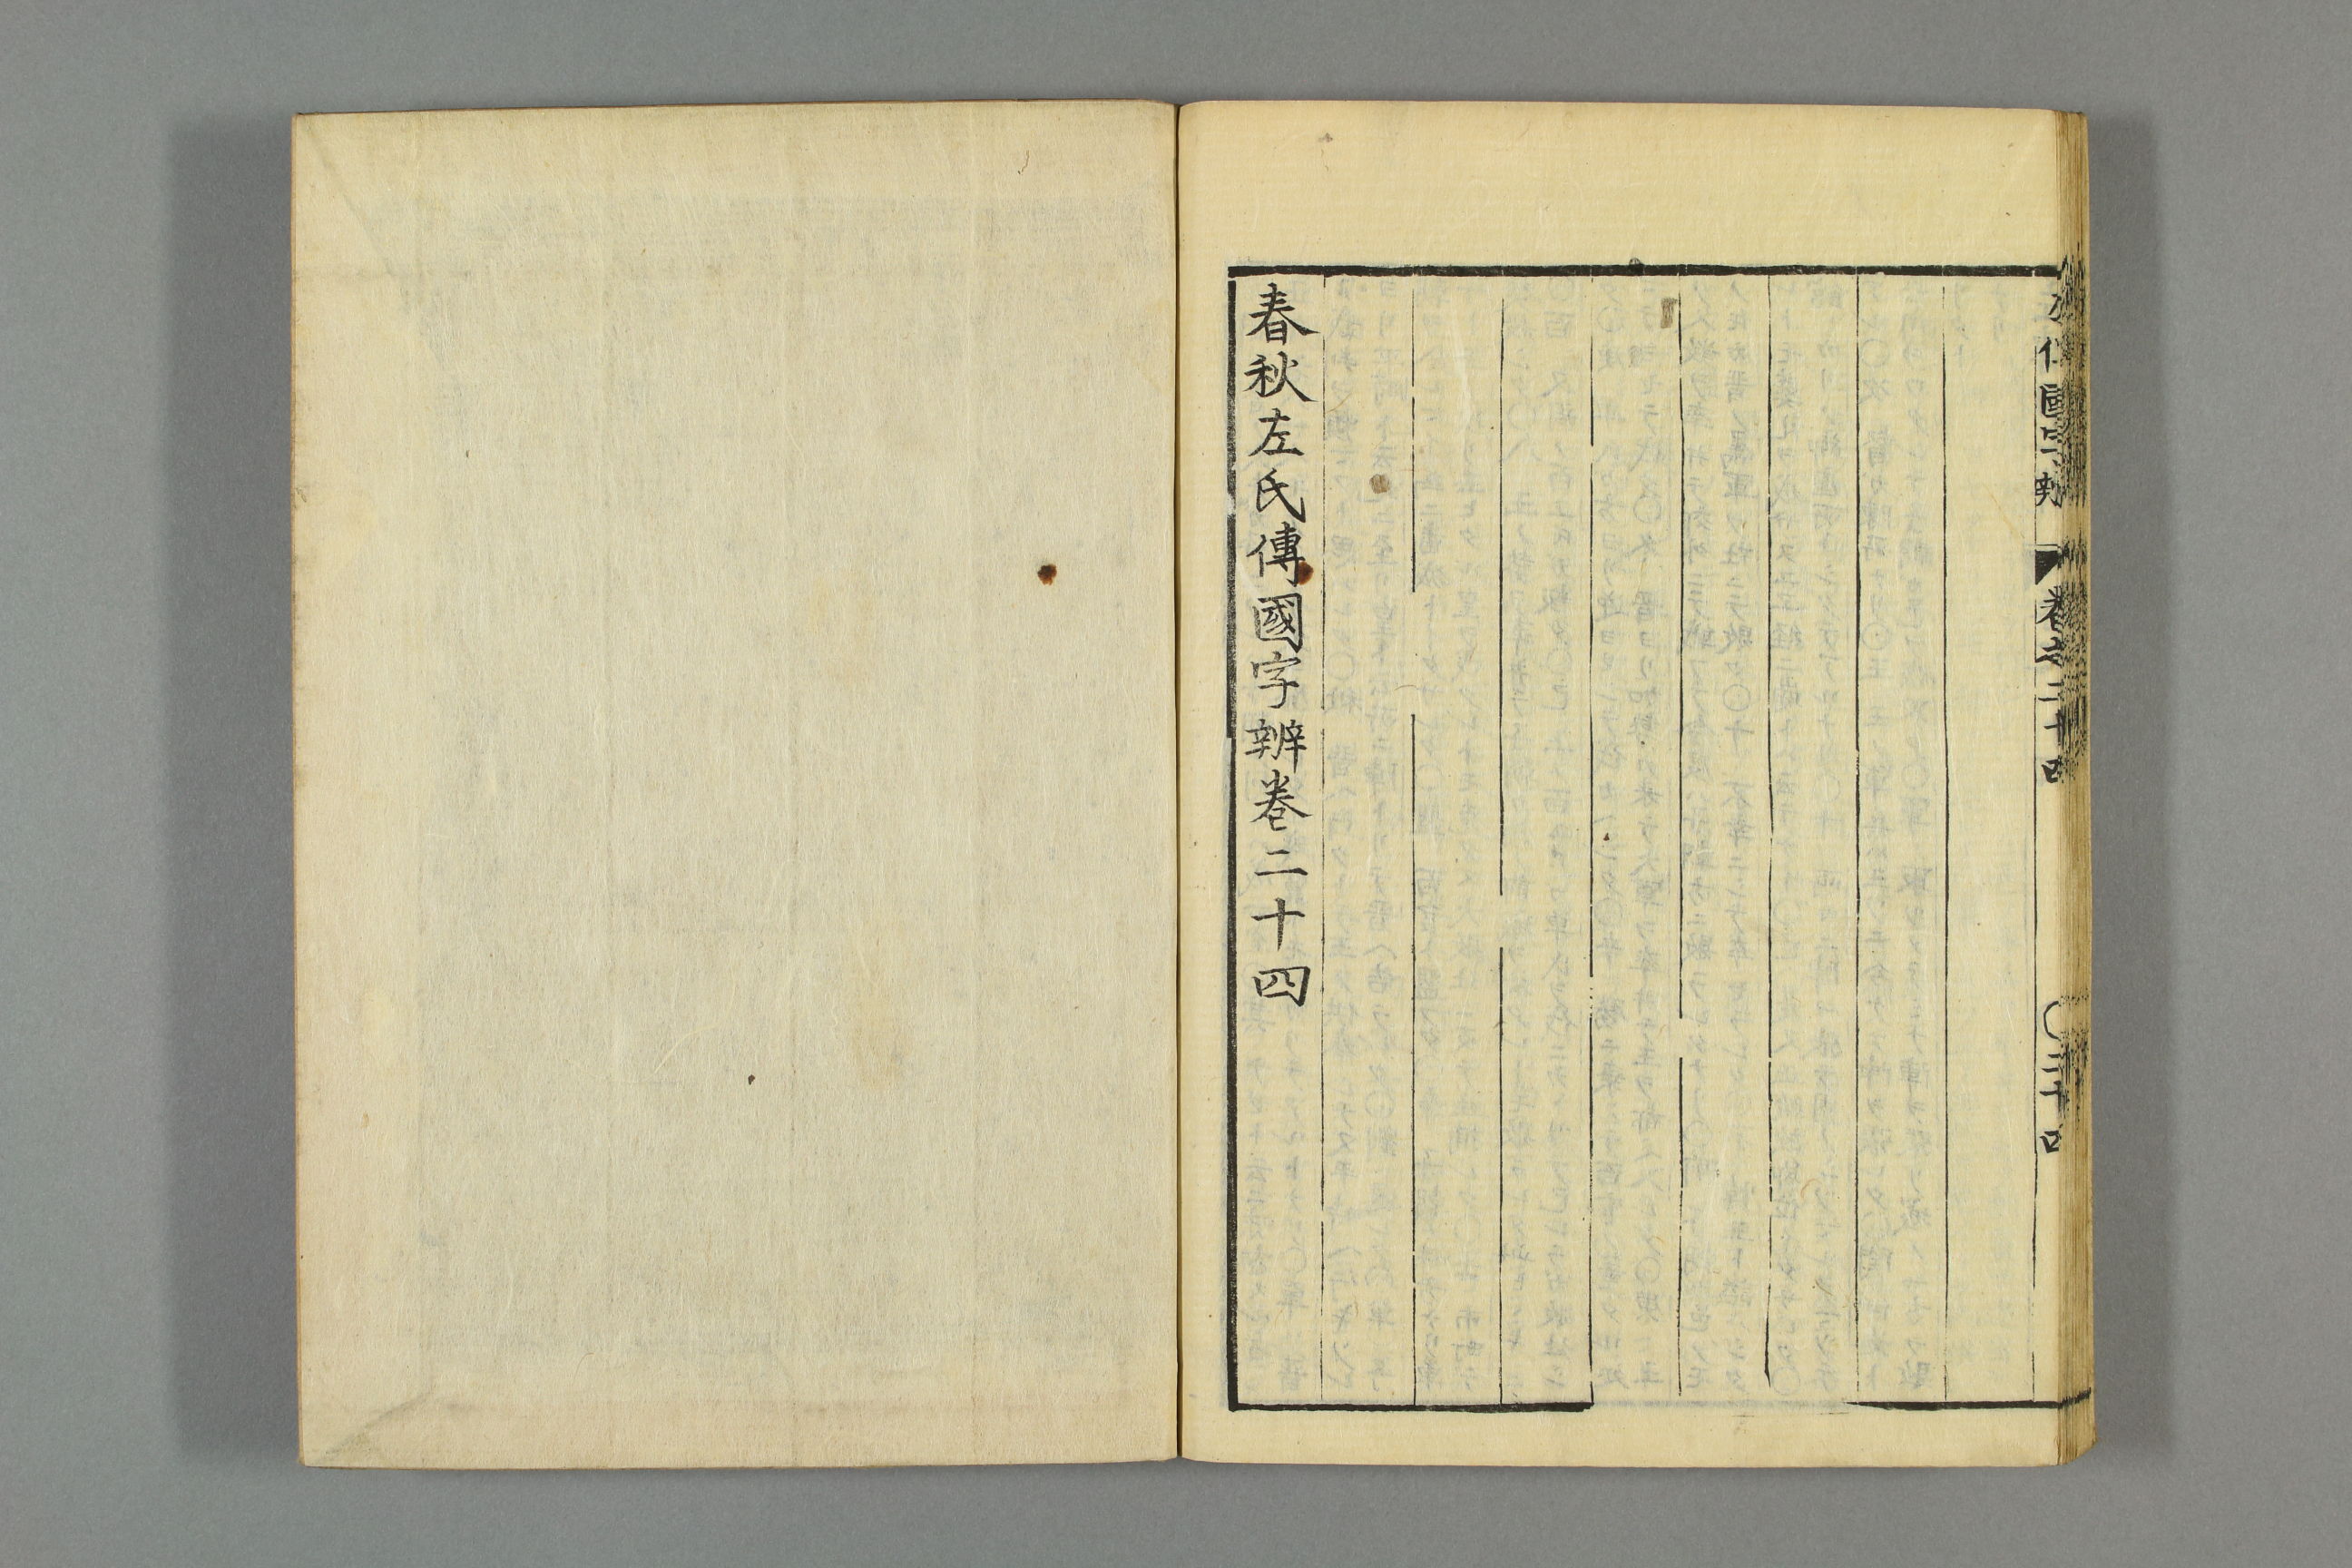 左傳國字辨 卷之二十四 〇三十四
春秋左氏傳國字辨卷二十四